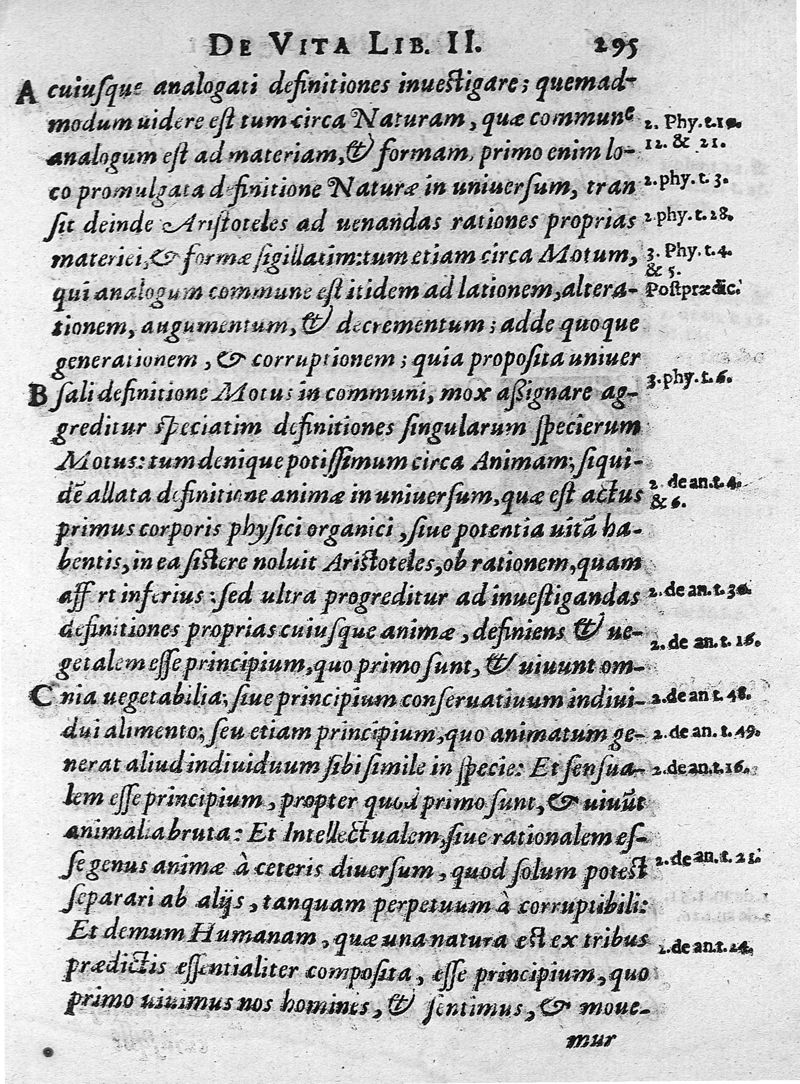 DE VITA LIB. II. 295
A cuiusque analogati definitiones inuestigare; quemad-
modum uidere est tum circa Naturam, quæ commune 2. Phy. t. 10.
analogum est ad materiam, & formam, primo enim lo- 12. & 21.
co promulgata definitione Naturæ in uniuersum, tran 2. phy. t. 3.
sit deinde Aristoteles ad uenandas rationes proprias 2 phy. t. 28.
materiei, & formæ sigillatim: tum etiam circa Motum, 3. Phy. t. 4.
& 5.
qui analogum commune est itidem ad lationem, altera- Postprædic.
tionem, augumentum, & decrementum; adde quoque
generationem, & corruptionem; quia proposita uniuer
B sali definitione Motus in communi, mox aßignare ag- 3. phy. t. 6.
greditur speciatim definitiones singularum specierum
Motus: tum denique potissimum circa Animam; siqui-
dē allata definitione animæ in uniuersum, quæ est actus 2. de an. t. 4.
& 6.
primus corporis physici organici, siue potentia uitā ha-
bentis, in ea sistere noluit Aristoteles, ob rationem, quam
affert inferius: sed ultra progreditur ad inuestigandas 2. de an. t. 30.
definitiones proprias cuiusque animæ, definiens & ue-
2. de an. t. 16.
getalem esse principium, quo primo sunt, & uiuunt om-
C nia uegetabilia; siue principium conseruatiuum indiui- 2. de an t. 48.
dui alimento; seu etiam principium, quo animatum ge- 2. de an. t. 49.
nerat aliud indiuiduum sibi simile in specie: Et sensua- 2. de an. t. 16.
lem esse principium, propter quod primo sunt, & uiuūt
animalia bruta: Et Intellectualem, siue rationalem es-
se genus animæ à ceteris diuersum, quod solum potest 2. de an. t. 21.
separari ab alijs, tanquam perpetuum à corruptibili:
Et demum Humanam, quæ una natura est ex tribus 2. de an. t. 24.
prædictis essentialiter composita, esse principium, quo
primo uiuimus nos homines, & sentimus, & moue-
mur